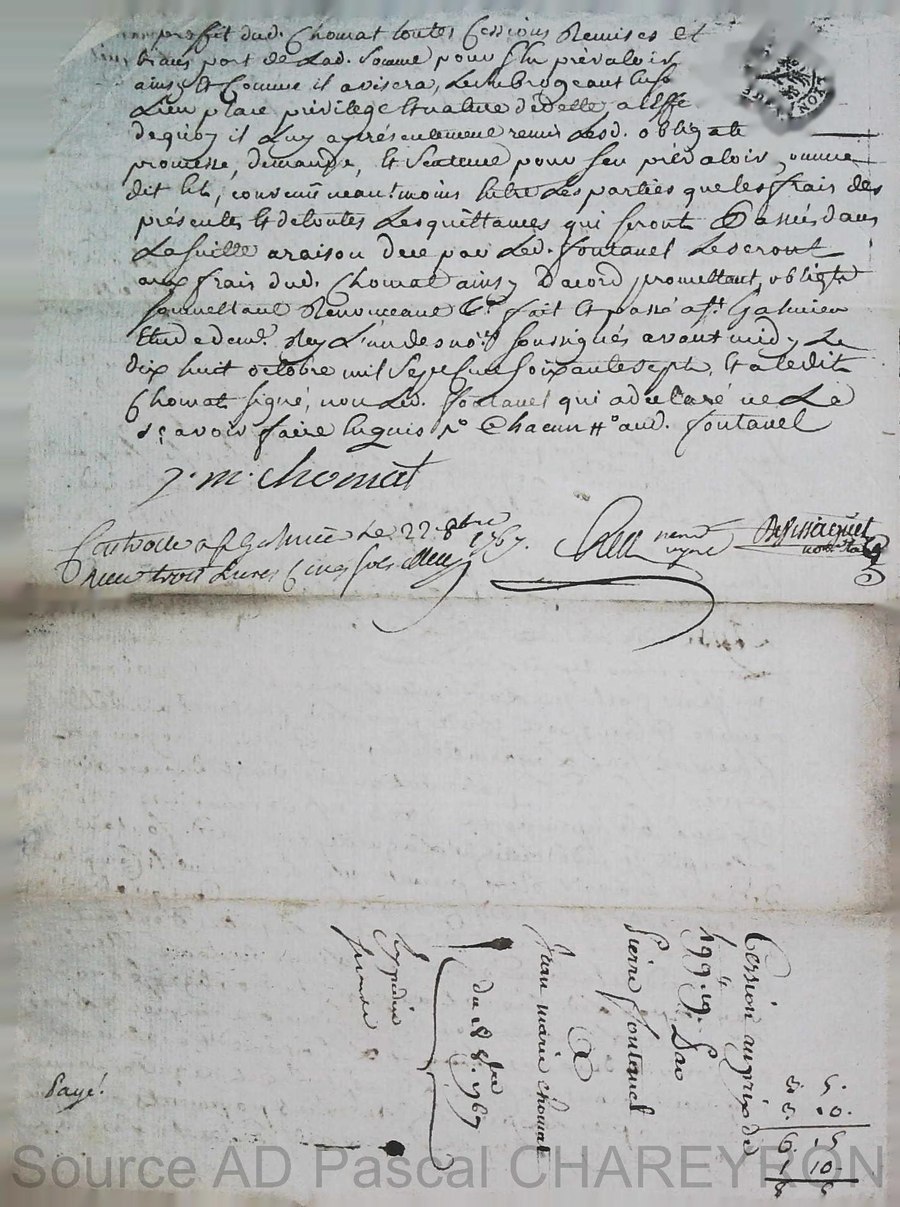 profit dud. Chomat toutes Cessions Remises et
trans port de Lad. Somme pour sen prévaloir
ainsy et Comme il avisera, Lesubrogeant
Lieu place privilege et nature de dette, a Leffe
dequoy il Luy a présentement remis Lesd. obligate
promesse, demande, et Sentence pour sen prévaloir, comme
dit est, convenu neantmoins entre Les parties que les frais des
présentes et de toutes Lesquittances qui seront Passées dans
Lasuitte araison de ce par Led. fontanel Le seront
aux frais dud. Chomat ainsy Dacord promettant, obligt
soumettant Renonceant &c. fait et passé a St. Galmier
Etude de me. Rey L'un des nores. soussignés avant midy Le
dix huit octobre mil sept cent soixante sept, et a ledit
Chomat signé, non Led. fontanel qui a déclaré ne La
sçavoir faire enquis Chacun aud. fontanel
j. m. chomat
Controllé a St Galmier Le 22. 8bre 1767.
Reçu trois Livres Cinq sols
Rey
Payé!
Cession au prix de
199 lt. 19 s. Par
Pierre fontanel
A
Jean marie chomat
du 18 8bre 1767
Expédiée
5. 5.
5. 10.
6. 15
1 10